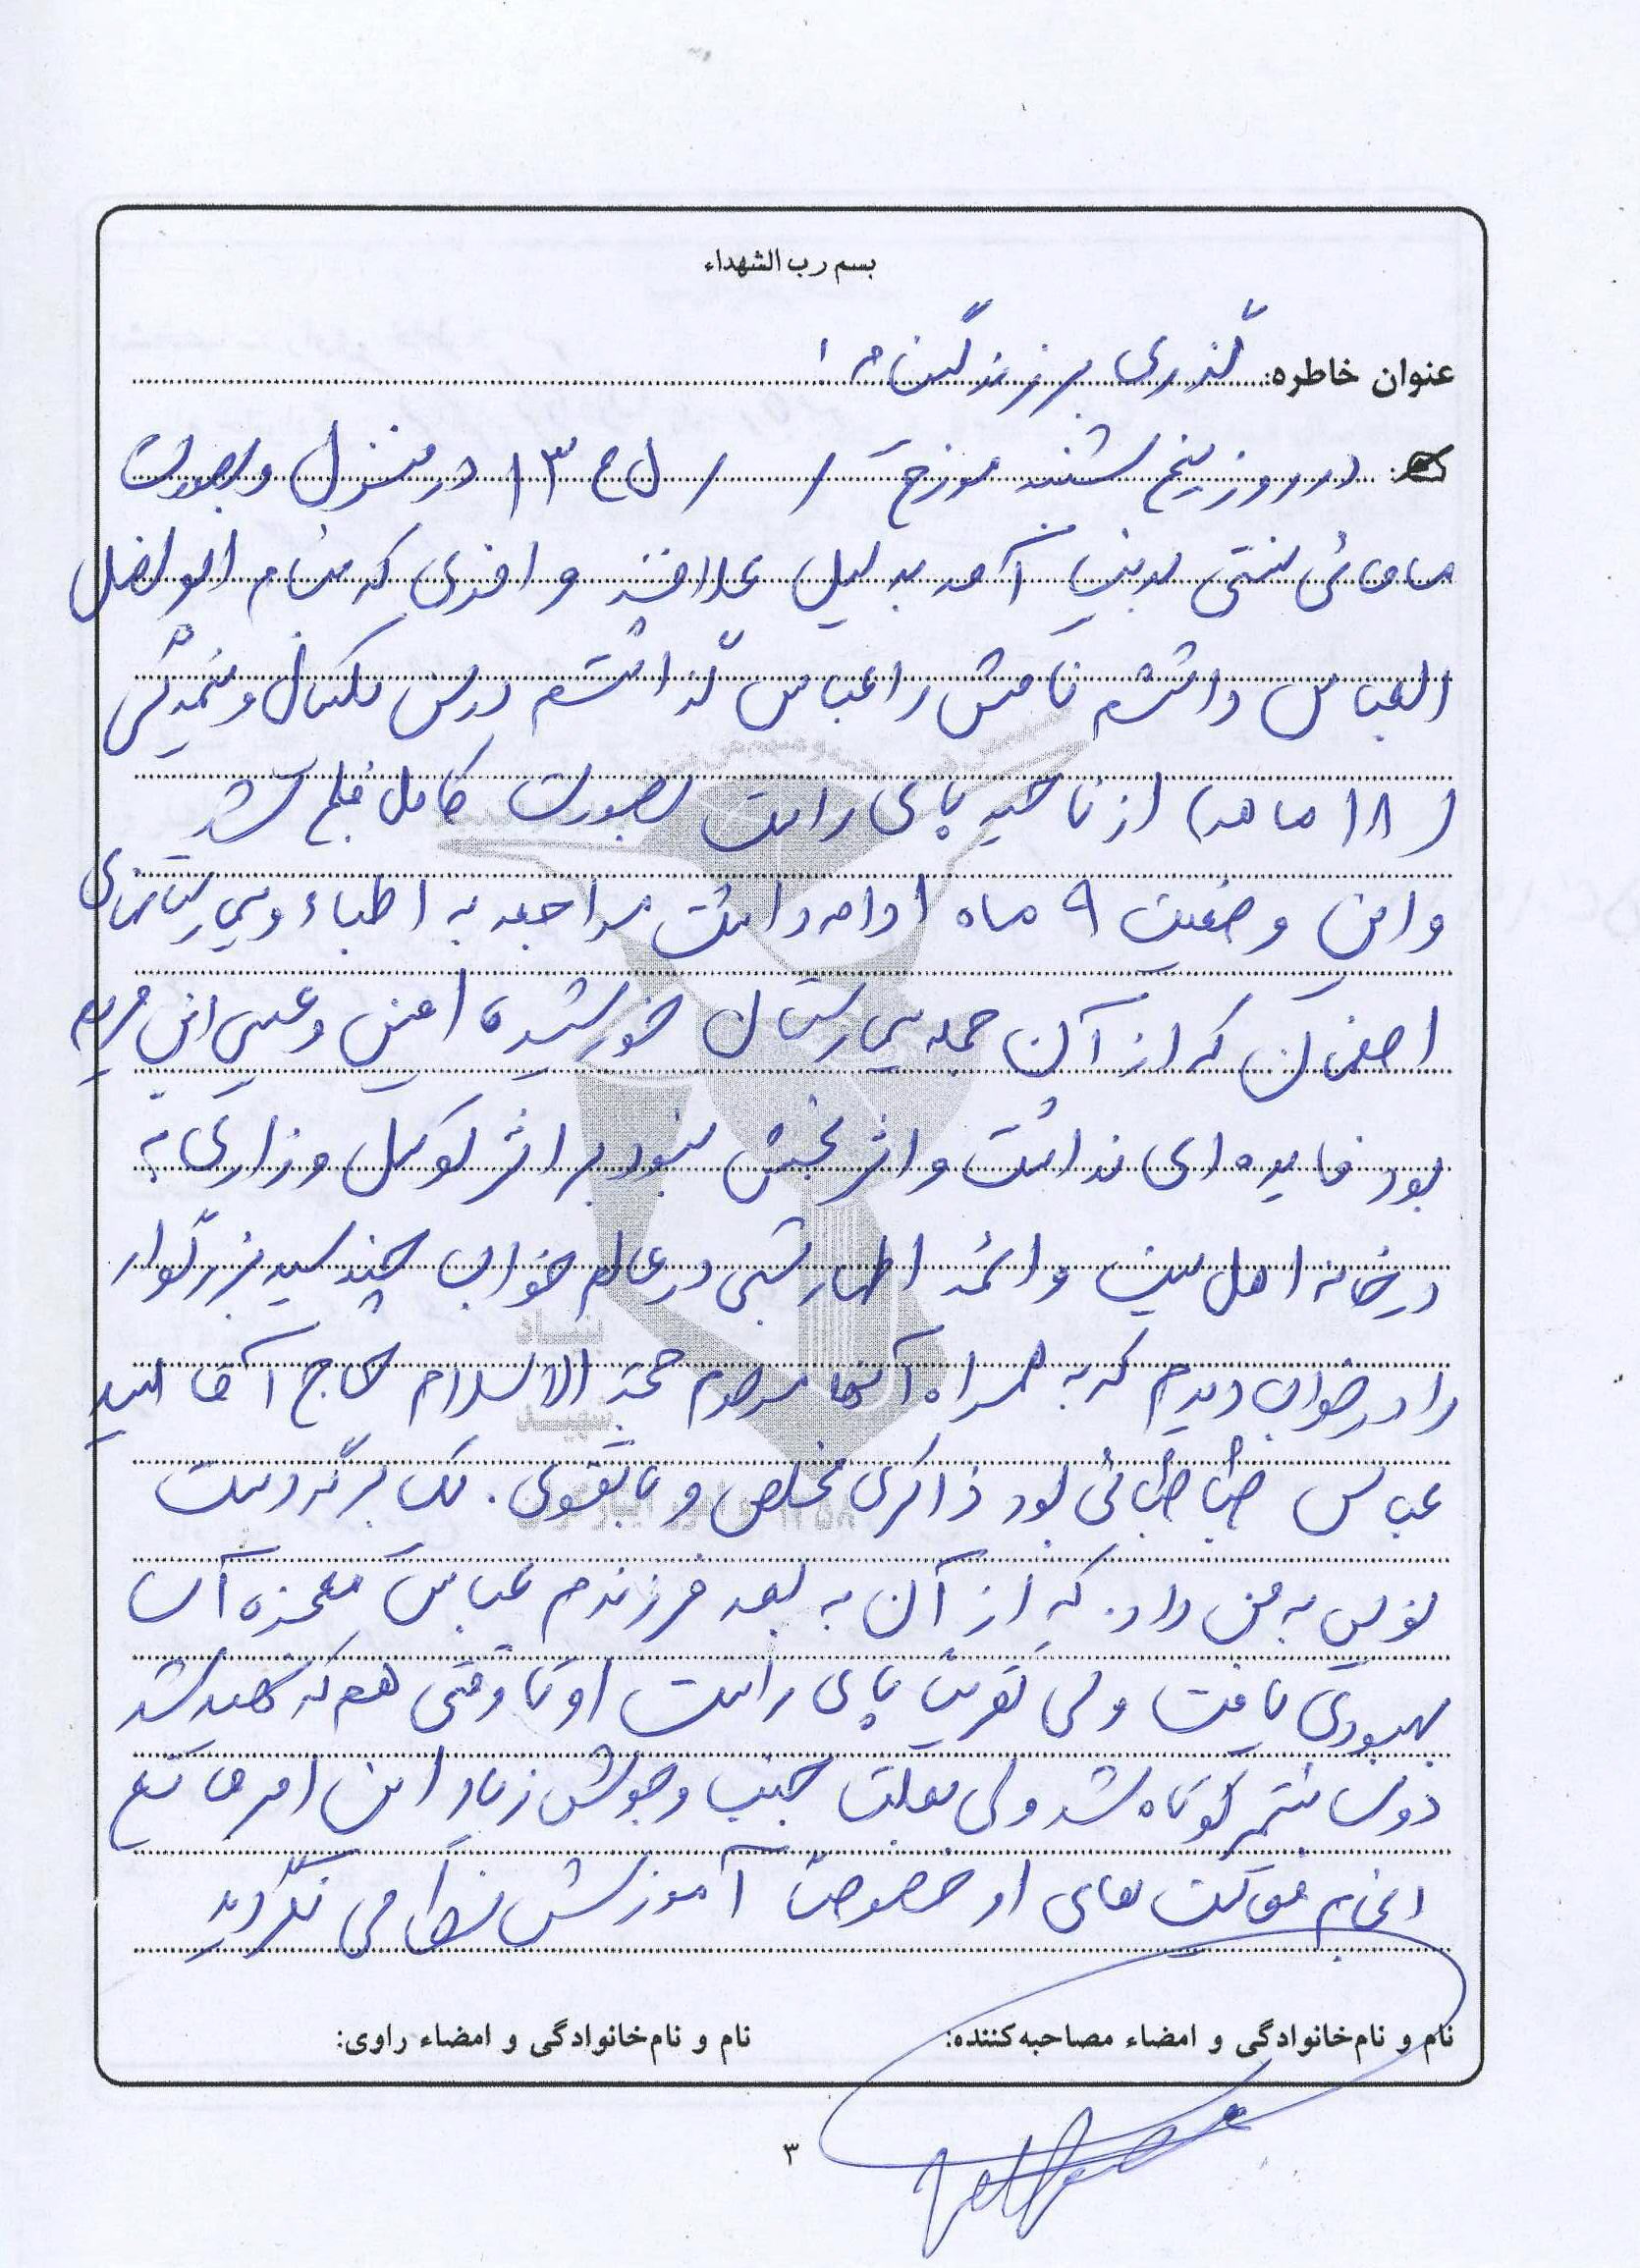 بسم رب الشهداء
عنوان خاطره: گذری بر زندگینام
در روز پنج شنبه مورخ / / ۱۳۴ در منزل و بصورت
مامائی سنتی بدنیا آمد بدلیل علاقه وافری که بنام ابوالفضل
العباس داشتم نامش را عباس گذاشتم درسن یکسال و نیمگی
(۱۸ ماهه) از ناحیه پای راست بصورت کامل فلج شد
و این وضعیت ۹ ماه ادامه داشت مراجعه به اطباء و بیمارستانهای
اصفهان که از آن جمله بیمارستان خورشید، امین و عیسی ابن مریم
بود فایده ای نداشت و اثر بخش نبود بر اثر توسل و زاری به
درخانه اهل بیت و ائمه اطهار شبی در عالم خواب چند سید بزرگوار
را در خواب دیدم که به همراه آنها مرحوم حجة الاسلام حاج آقا سید
عباس طباطبائی بود ذاکری مخلص و با تقوی. یک برگه دست
نویس به من داد. که از آن به بعد فرزندم عباس معجزه آسا
بهبودی یافت ولی تقریبا پای راست او تا وقتی هم که شهید شد
دو سانتیمتر کوتاه شد ولی بعلت جنب و جوش زیاد این امر مانع
انجام فعالیت های او خصوصاً آموزش نظامی نگردید
نام و نام‌خانوادگی و امضاء مصاحبه‌کننده:
نام و نام‌خانوادگی و امضاء راوی:
۳
بنیاد
شهید